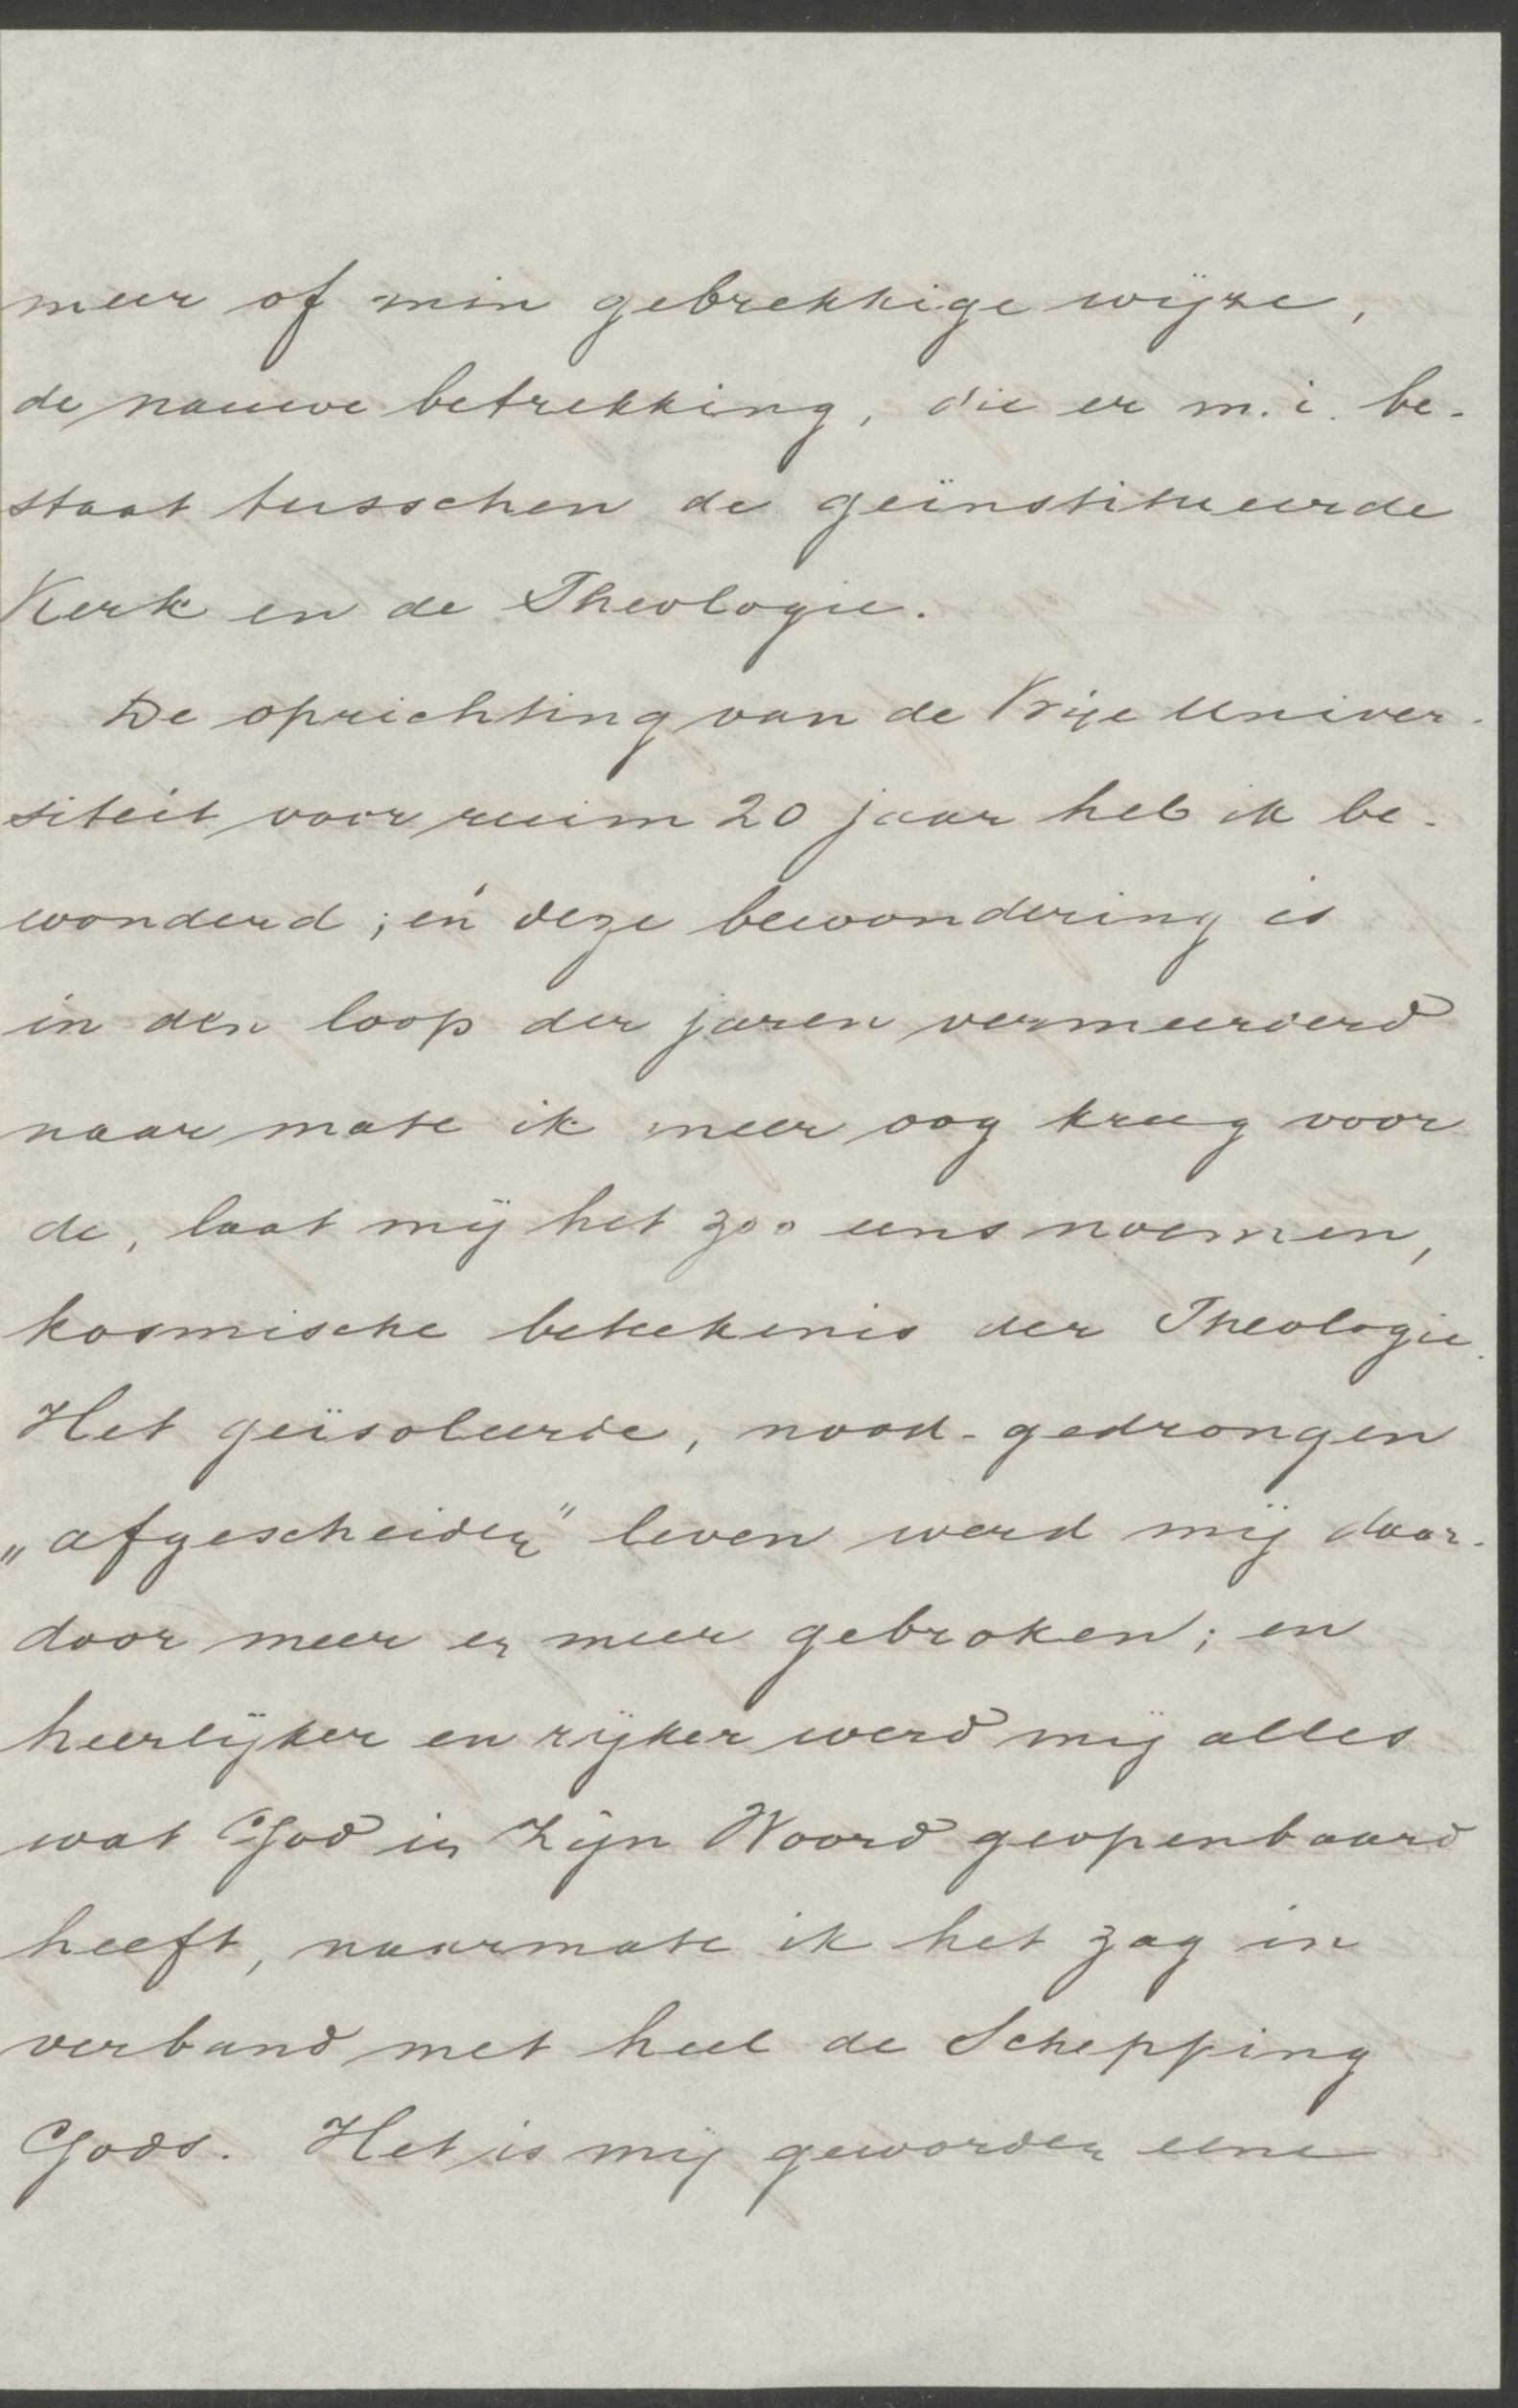 meer of min gebrekkige wijze,
de nauwe betrekking, die er m.i. be-
staat tusschen de geïnstitueerde
Kerk en de Theologie.
De oprichting van de Vrije Univer-
siteit voor ruim 20 jaar heb ik be-
wonderd; en deze bewondering is
in den loop der jaren vermeerderd
naar mate ik meer oog kreeg voor
de, laat mij het zoo eens noemen,
kosmische beteekenis der Theologie.
Het geïsoleerde, nood-gedrongen
„afgescheiden” leven werd mij daar-
door meer en meer gebroken; en
heerlijker en rijker werd mij alles
wat God in Zijn Woord geopenbaard
heeft, naarmate ik het zag in
verband met heel de Schepping
Gods. Het is mij geworden eene